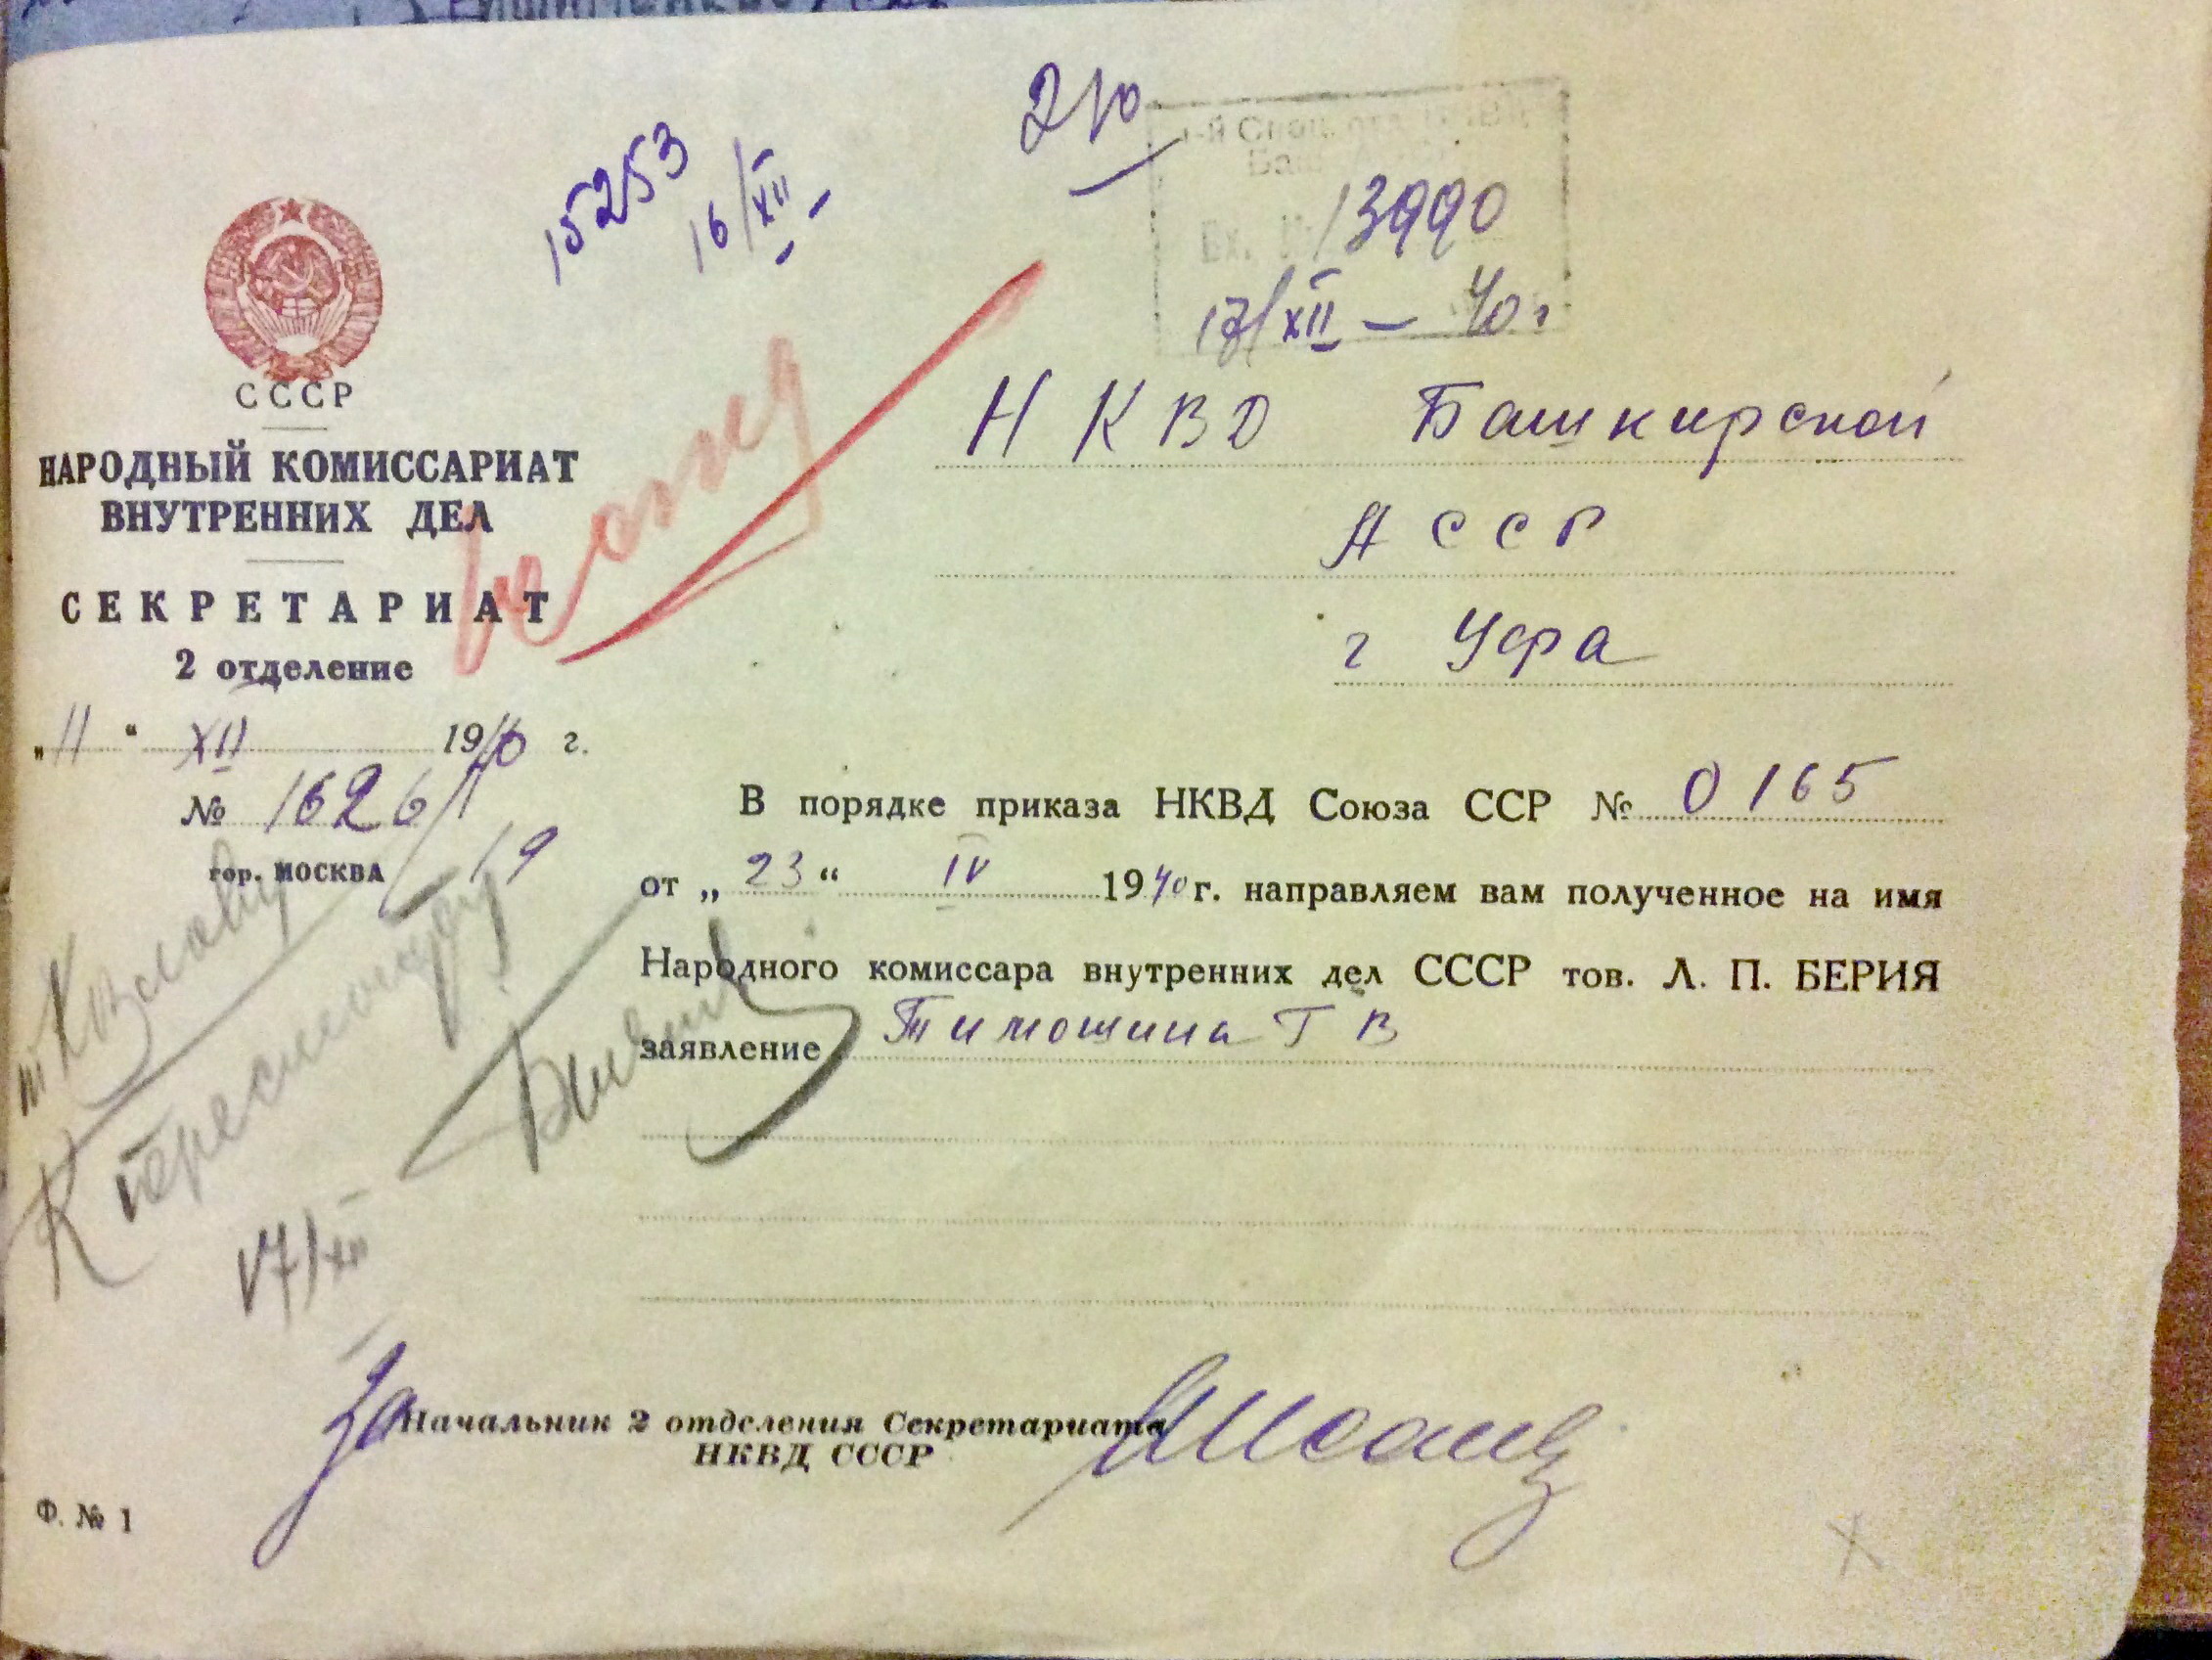 210
15253
16/XII
13990
17/XII — 40 г
СССР
НАРОДНЫЙ КОМИССАРИАТ
ВНУТРЕННИХ ДЕЛ
СЕКРЕТАРИАТ
2 отделение
„11“ XII 1940 г.
№ 16261
19
гор. МОСКВА
НКВД Башкирской
АССР
г Уфа
В порядке приказа НКВД Союза ССР № 0165
от „23“ IV 1940 г. направляем вам полученное на имя
Народного комиссара внутренних дел СССР тов. Л. П. БЕРИЯ
заявление Тимошина Г В
т Козлову
К пересмотру
17/XII
За Начальник 2 отделения Секретариата
НКВД СССР
Ф. № 1